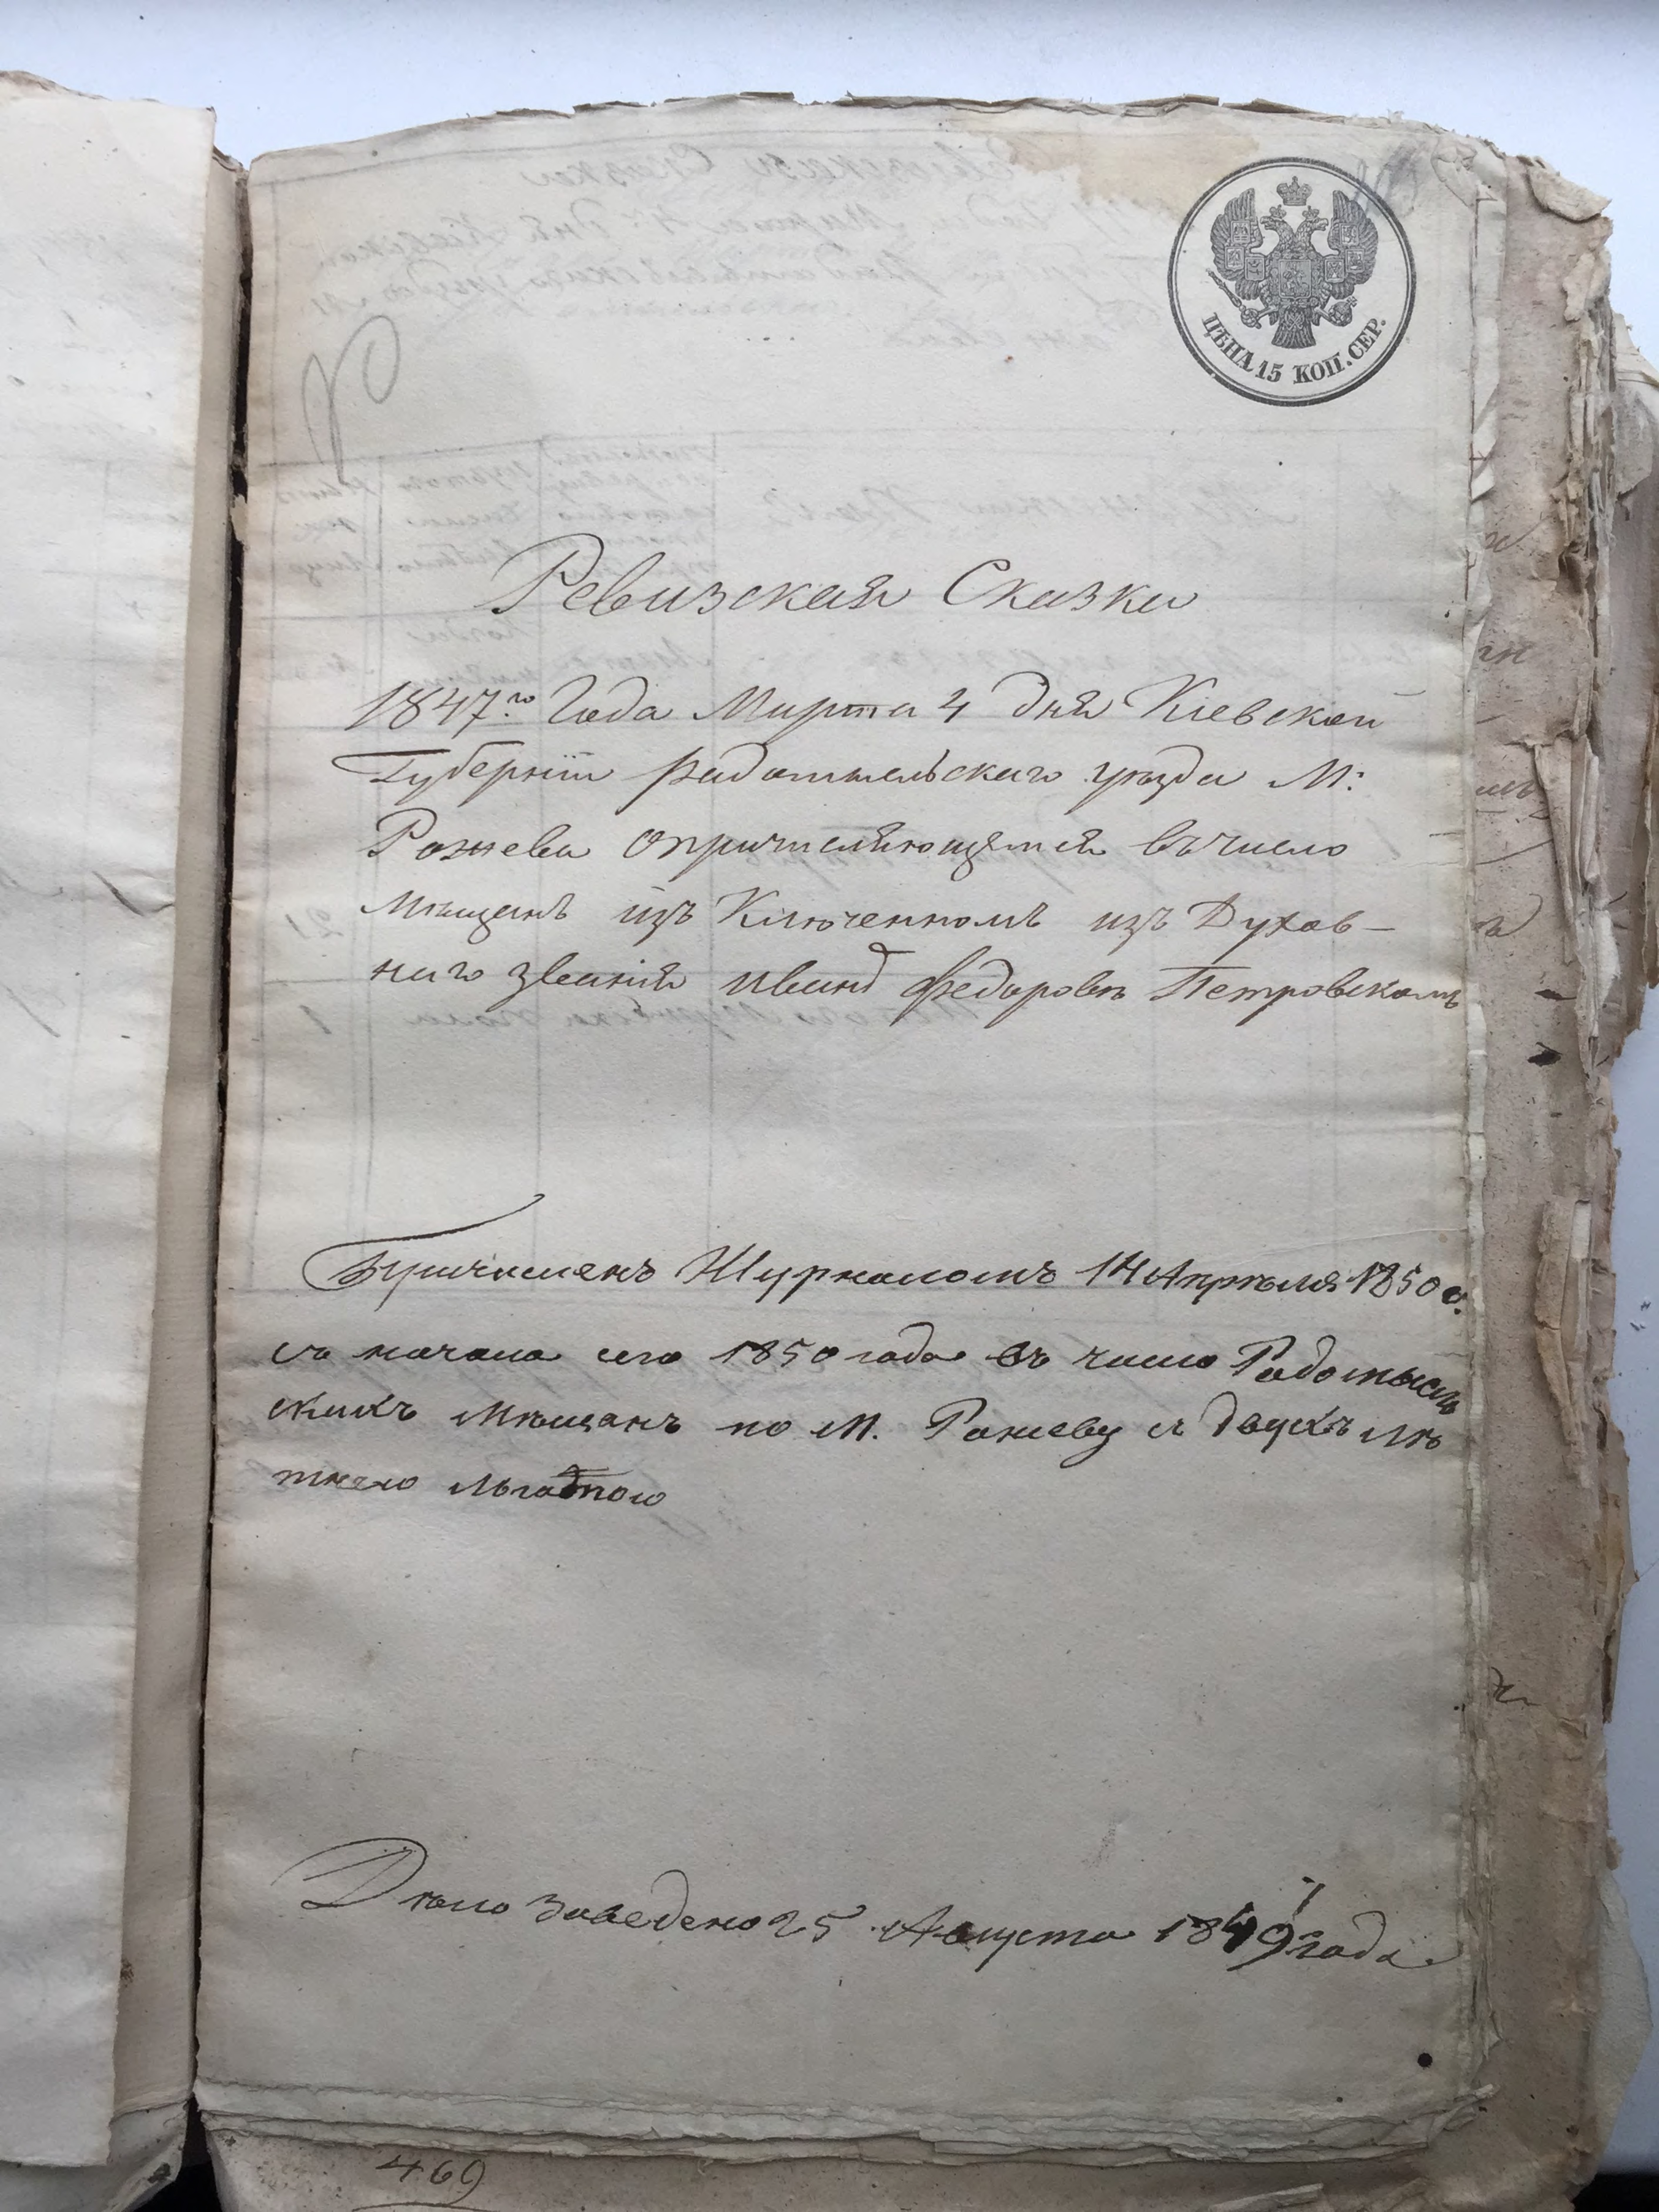 ЦѢНА 15 КОП. СЕР.
Ревизская Сказка
1847.го Года Марта 4 дня Кіевской
Губерніи Радомысльскаго уѣзда М:
Рожева опричисляющемся въ число
мѣщанъ изъ Ключенномъ изъ Духов-
наго званія Иванѣ Федоровѣ Петровскомъ
Причисленъ Журналомъ 14 Апрѣля 1850 г.
съ начала сего 1850 года въ число Радомысль
скихъ Мѣщанъ по М. Рожеву съ двухъ лѣ
тнею льготою
Дѣло заведено 25 Августа 1849 года
469